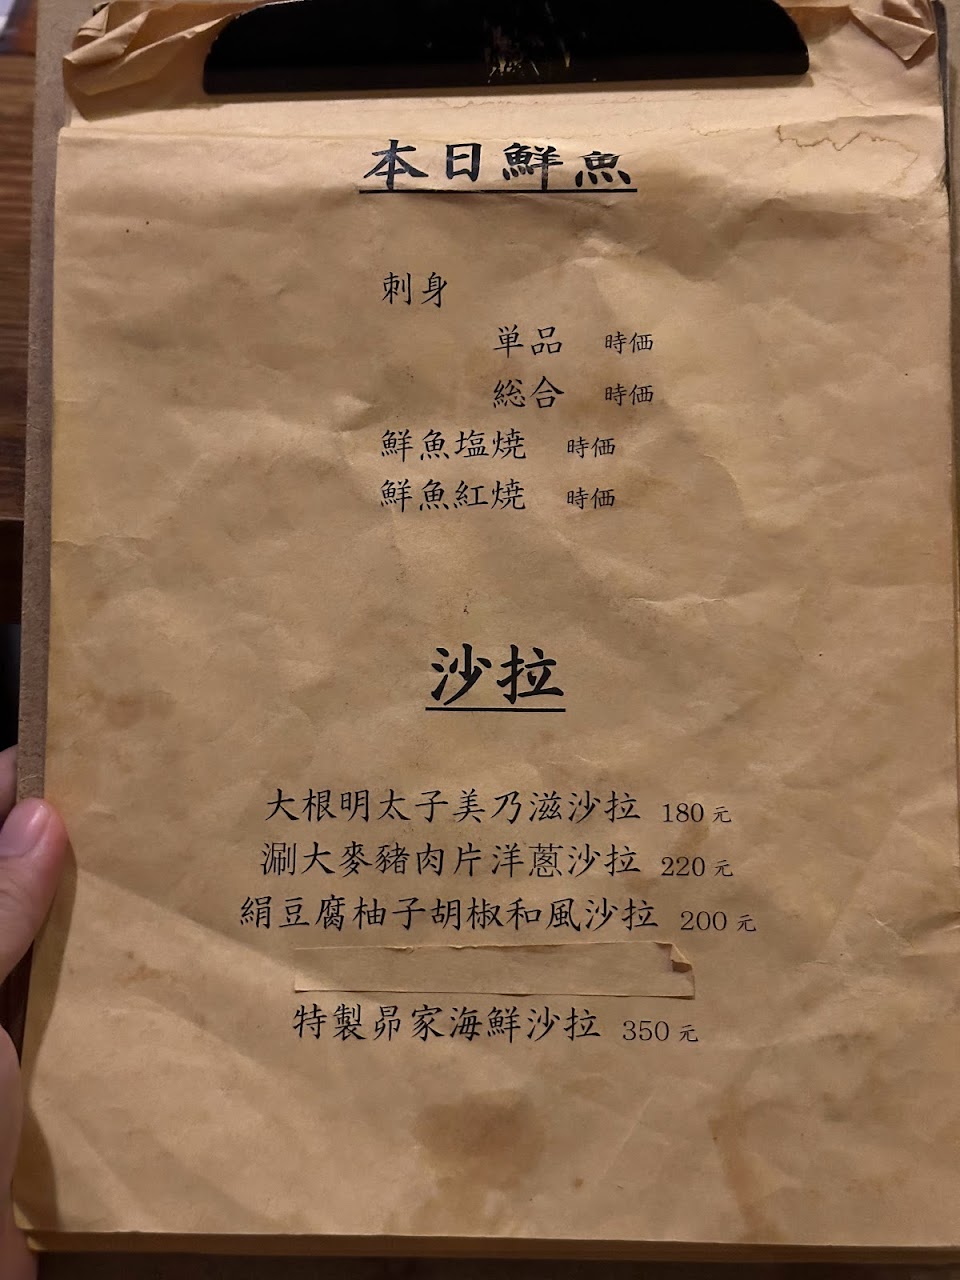 本日鮮魚
刺身
単品 時価
総合 時価
鮮魚塩焼 時価
鮮魚紅焼 時価
沙拉
大根明太子美乃滋沙拉 180元
涮大麥豬肉片洋蔥沙拉 220元
絹豆腐柚子胡椒和風沙拉 200元
特製昴家海鮮沙拉 350元